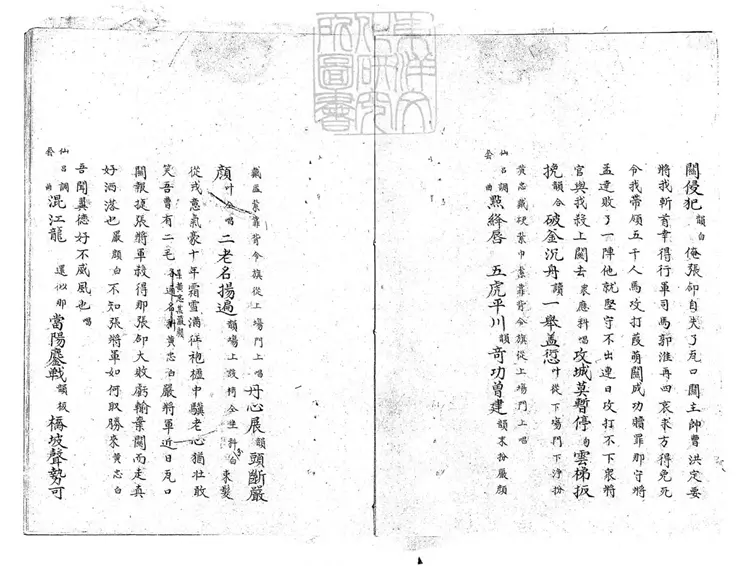 關侵犯韻白俺張郃自失了瓦口關主帥曹洪定要
將我斬首幸得行軍司馬郭淮再四哀求方得免死
令我帶領五千人馬攻打葭萌關成功贖罪那守將
孟達敗了一陣他就堅守不出連日攻打不下衆將
官與我殺上關去衆應科唱攻城莫暫停句雲梯扳
挽韻合破釜沉舟讀一舉盖愆叶從下場門下淨扮
黃忠戴硬紮巾紮靠背令旗從上場門上唱
仙呂調套曲點絳唇 五虎平川韻奇功曾建韻末扮嚴顏
戴盔紮靠背令旗從上場門上唱丹心展韻頭斷嚴
顏叶合唱二老名揚遍韻場上設椅仝坐科白来髮
從戎意氣豪十年霜雪滿征袍櫪中驥老心猶壯敢
笑吾曹有二毛各通名科黃忠白嚴將軍近日瓦口
關報捷張將軍殺得那張郃大敗虧輸棄關而走真
好洒落也嚴顏白不知張將軍如何取勝來黃忠白
吾聞翼德好不威風也唱
仙呂調套曲混江龍 還似那當陽鏖戰韻板橋坡聲勢可
東洋文化研究所圖書